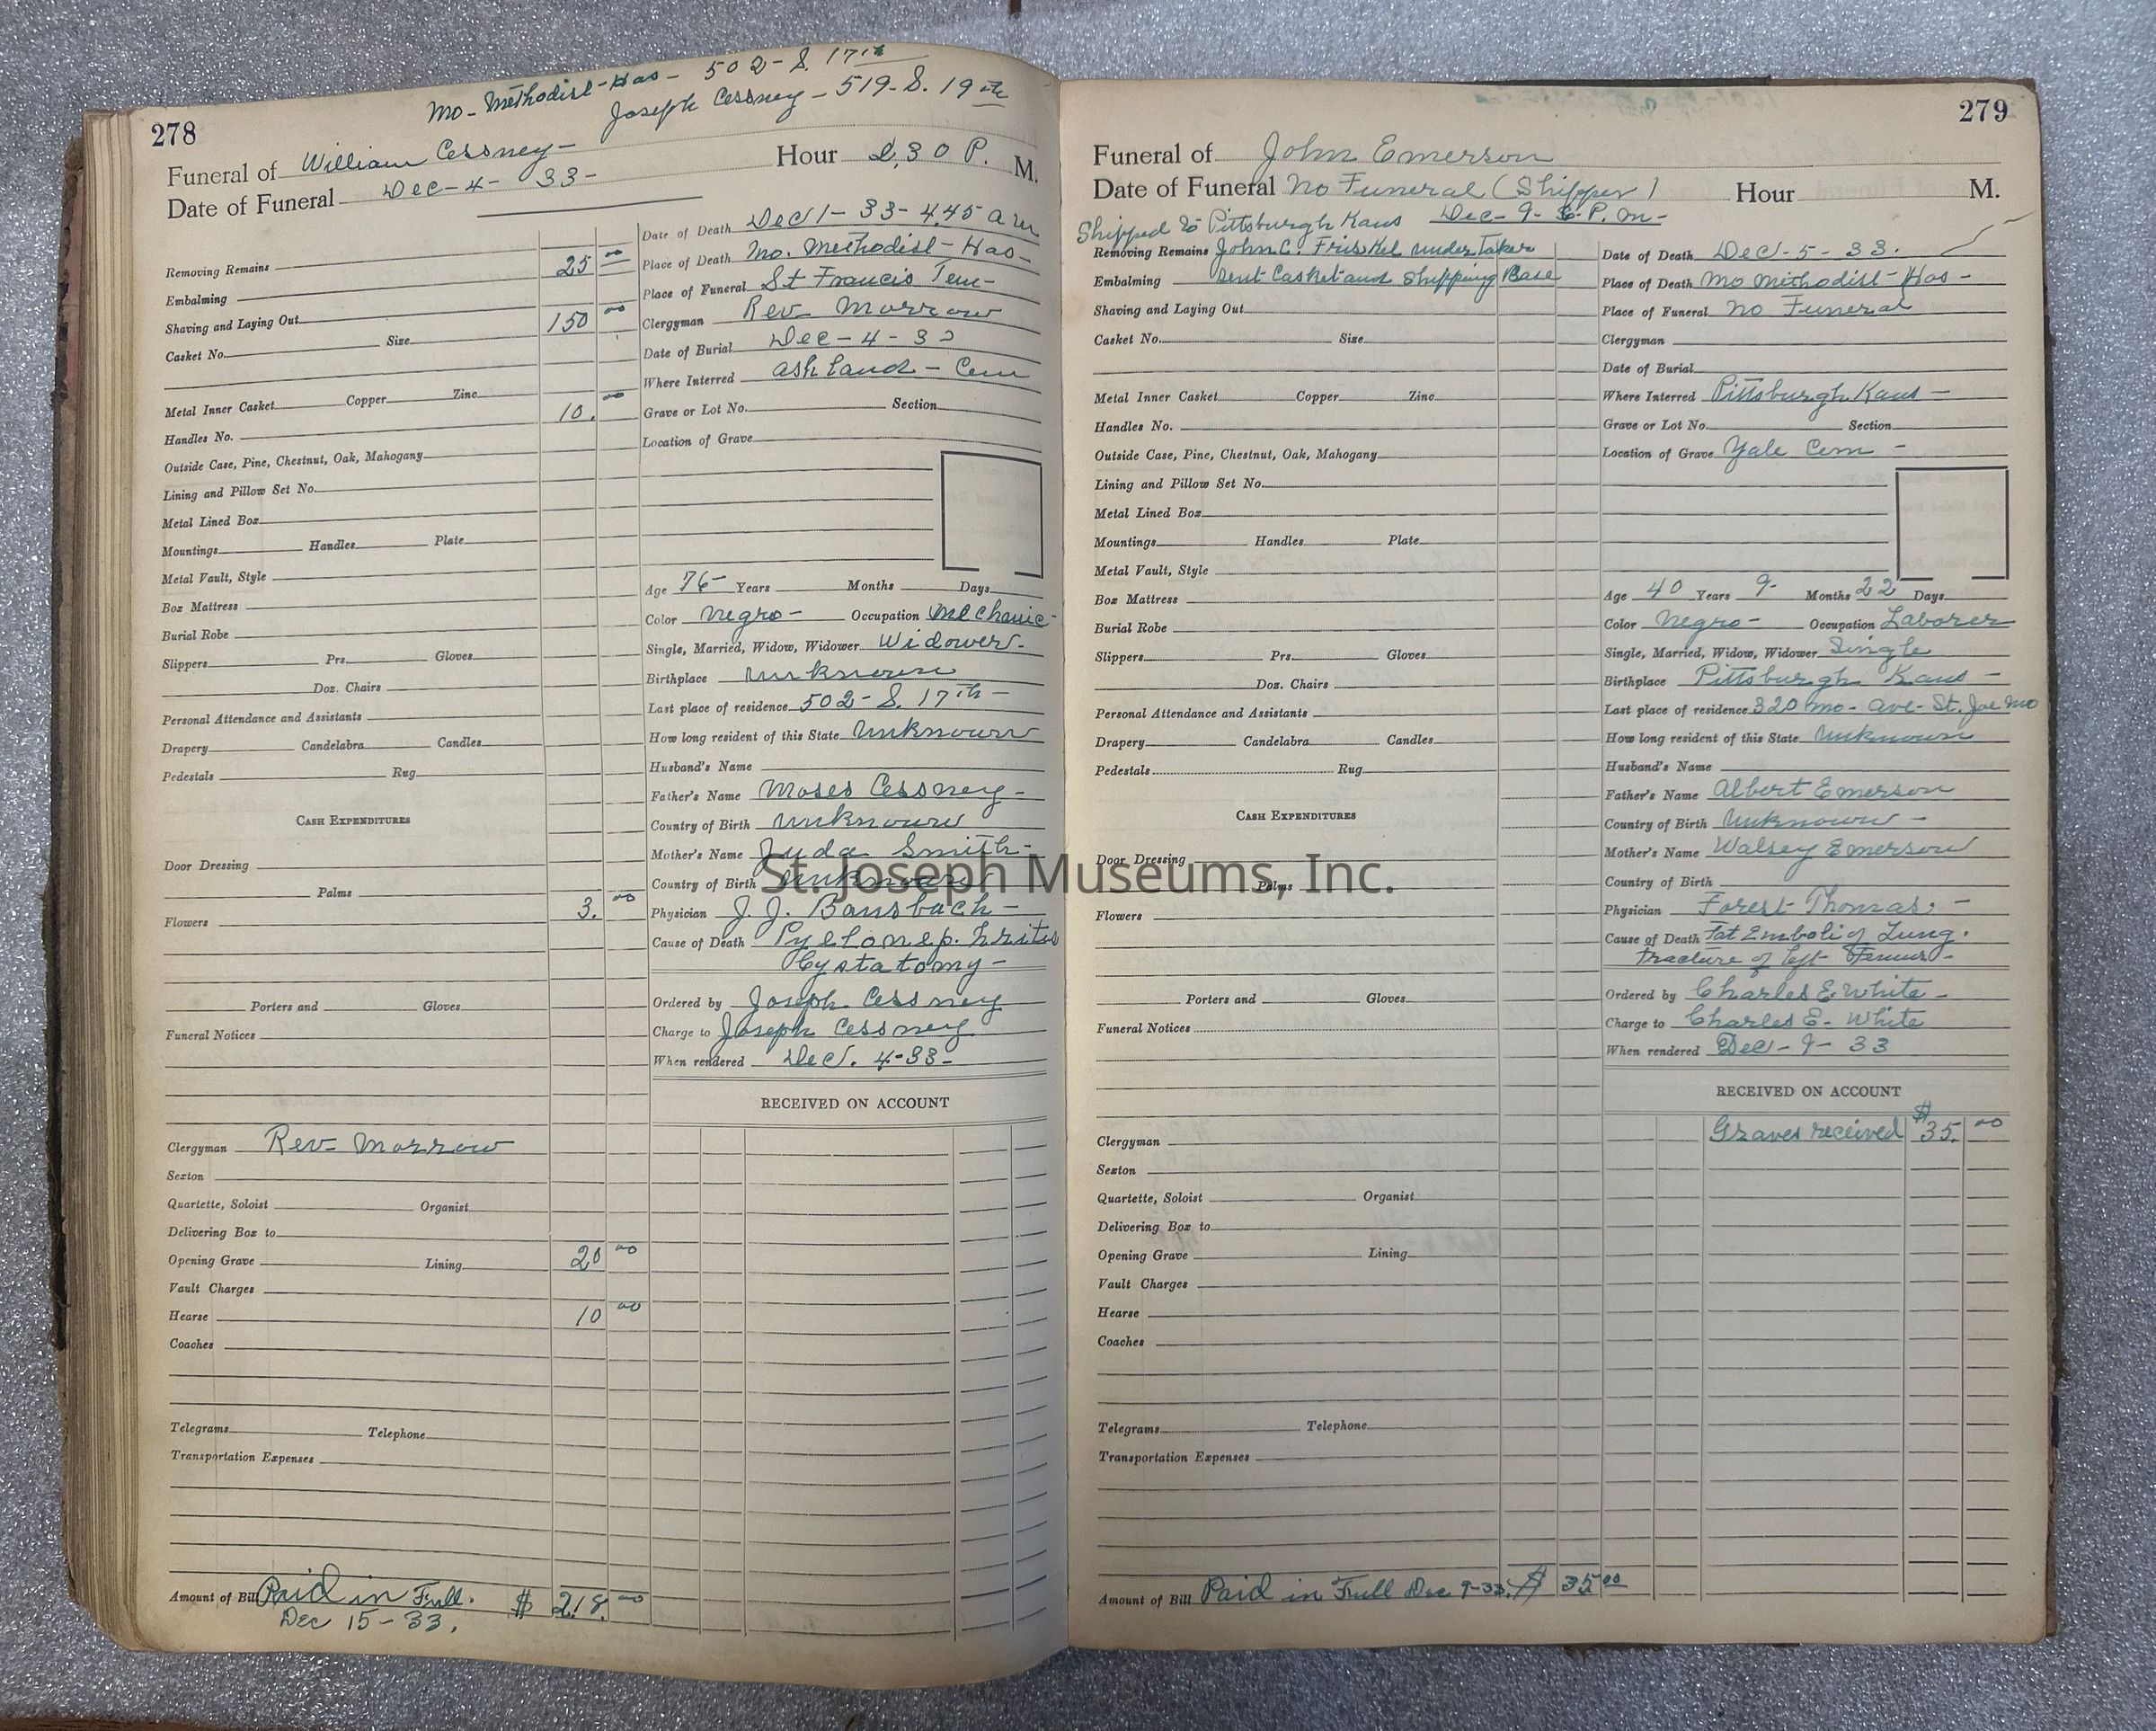 Mo-Methodist-Hos- 502-S. 17th
Joseph Cessney-519-S. 19th
278
Funeral of William Cessney- Hour 2,30 P. M.
Date of Funeral Dec-4- 33-
Removing Remains
25 00
Embalming
Shaving and Laying Out
150 00
Casket No. Size
Metal Inner Casket Copper Zinc
10. 00
Handles No.
Outside Case, Pine, Chestnut, Oak, Mahogany
Lining and Pillow Set No.
Metal Lined Box
Mountings Handles Plate
Metal Vault, Style
Box Mattress
Burial Robe
Slippers Prs. Gloves
Doz. Chairs
Personal Attendance and Assistants
Drapery Candelabra Candles
Pedestals Rug
CASH EXPENDITURES
Door Dressing
Palms
3. 00
Flowers
Porters and Gloves
Funeral Notices
Clergyman Rev- Morrow
Sexton
Quartette, Soloist Organist
Delivering Box to
Opening Grave Lining 20 00
Vault Charges
Hearse 10 00
Coaches
Telegrams Telephone
Transportation Expenses
Amount of Bill Paid in Full. $ 218. 00
Dec 15-33.
Date of Death Dec 1- 33- 4.45 a m
Place of Death Mo. Methodist-Hos-
Place of Funeral St Francis Tem-
Clergyman Rev Morrow
Date of Burial Dec-4-33
Where Interred Ashland-Cem
Grave or Lot No. Section
Location of Grave
Age 76- Years Months Days
Color Negro- Occupation Mechanic-
Single, Married, Widow, Widower Widower-
Birthplace Unknown
Last place of residence 502-S. 17th-
How long resident of this State Unknown
Husband's Name
Father's Name Moses Cessney-
Country of Birth Unknown
Mother's Name Juda Smith-
Country of Birth Unknown
Physician J. J. Bansbach-
Cause of Death Pyelonep.hritis
Cystatomy-
Ordered by Joseph Cessney
Charge to Joseph Cessney
When rendered Dec. 4-33-
RECEIVED ON ACCOUNT
279
Funeral of John Emerson
Date of Funeral No Funeral (Shipper) Hour M.
Shipped to Pittsburgh Kans Dec-9-6-P.m-
Removing Remains John C. Friskel undertaker
Embalming sent Casket and Shipping Base
Shaving and Laying Out
Casket No. Size
Metal Inner Casket Copper Zinc
Handles No.
Outside Case, Pine, Chestnut, Oak, Mahogany
Lining and Pillow Set No.
Metal Lined Box
Mountings Handles Plate
Metal Vault, Style
Box Mattress
Burial Robe
Slippers Prs. Gloves
Doz. Chairs
Personal Attendance and Assistants
Drapery Candelabra Candles
Pedestals Rug
CASH EXPENDITURES
Door Dressing
Palms
Flowers
Porters and Gloves
Funeral Notices
Clergyman
Sexton
Quartette, Soloist Organist
Delivering Box to
Opening Grave Lining
Vault Charges
Hearse
Coaches
Telegrams Telephone
Transportation Expenses
Amount of Bill Paid in Full Dec 9-33. $ 35 00
Date of Death Dec-5-33.
Place of Death Mo Methodist-Hos-
Place of Funeral No Funeral
Clergyman
Date of Burial
Where Interred Pittsburgh Kans-
Grave or Lot No. Section
Location of Grave Yale Cem-
Age 40 Years 9- Months 22 Days
Color Negro- Occupation Laborer
Single, Married, Widow, Widower Single
Birthplace Pittsburgh Kans-
Last place of residence 320 Mo-Ave-St. Joe Mo
How long resident of this State Unknown
Husband's Name
Father's Name Albert Emerson
Country of Birth Unknown-
Mother's Name Walsey Emerson
Country of Birth
Physician Forest Thomas.-
Cause of Death Fat Emboli of Lung.
Fracture of left Femur-
Ordered by Charles E. White-
Charge to Charles E- White
When rendered Dec-9-33
RECEIVED ON ACCOUNT
Graves received $ 35. 00
St. Joseph Museums, Inc.